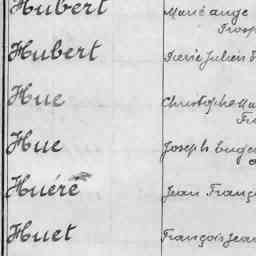 Hubert Marie ange
Hubert Pierre Julien
Hue Christophe Ma
Hue Joseph Eugen
Huéré Jean Franço
Huet François Jean